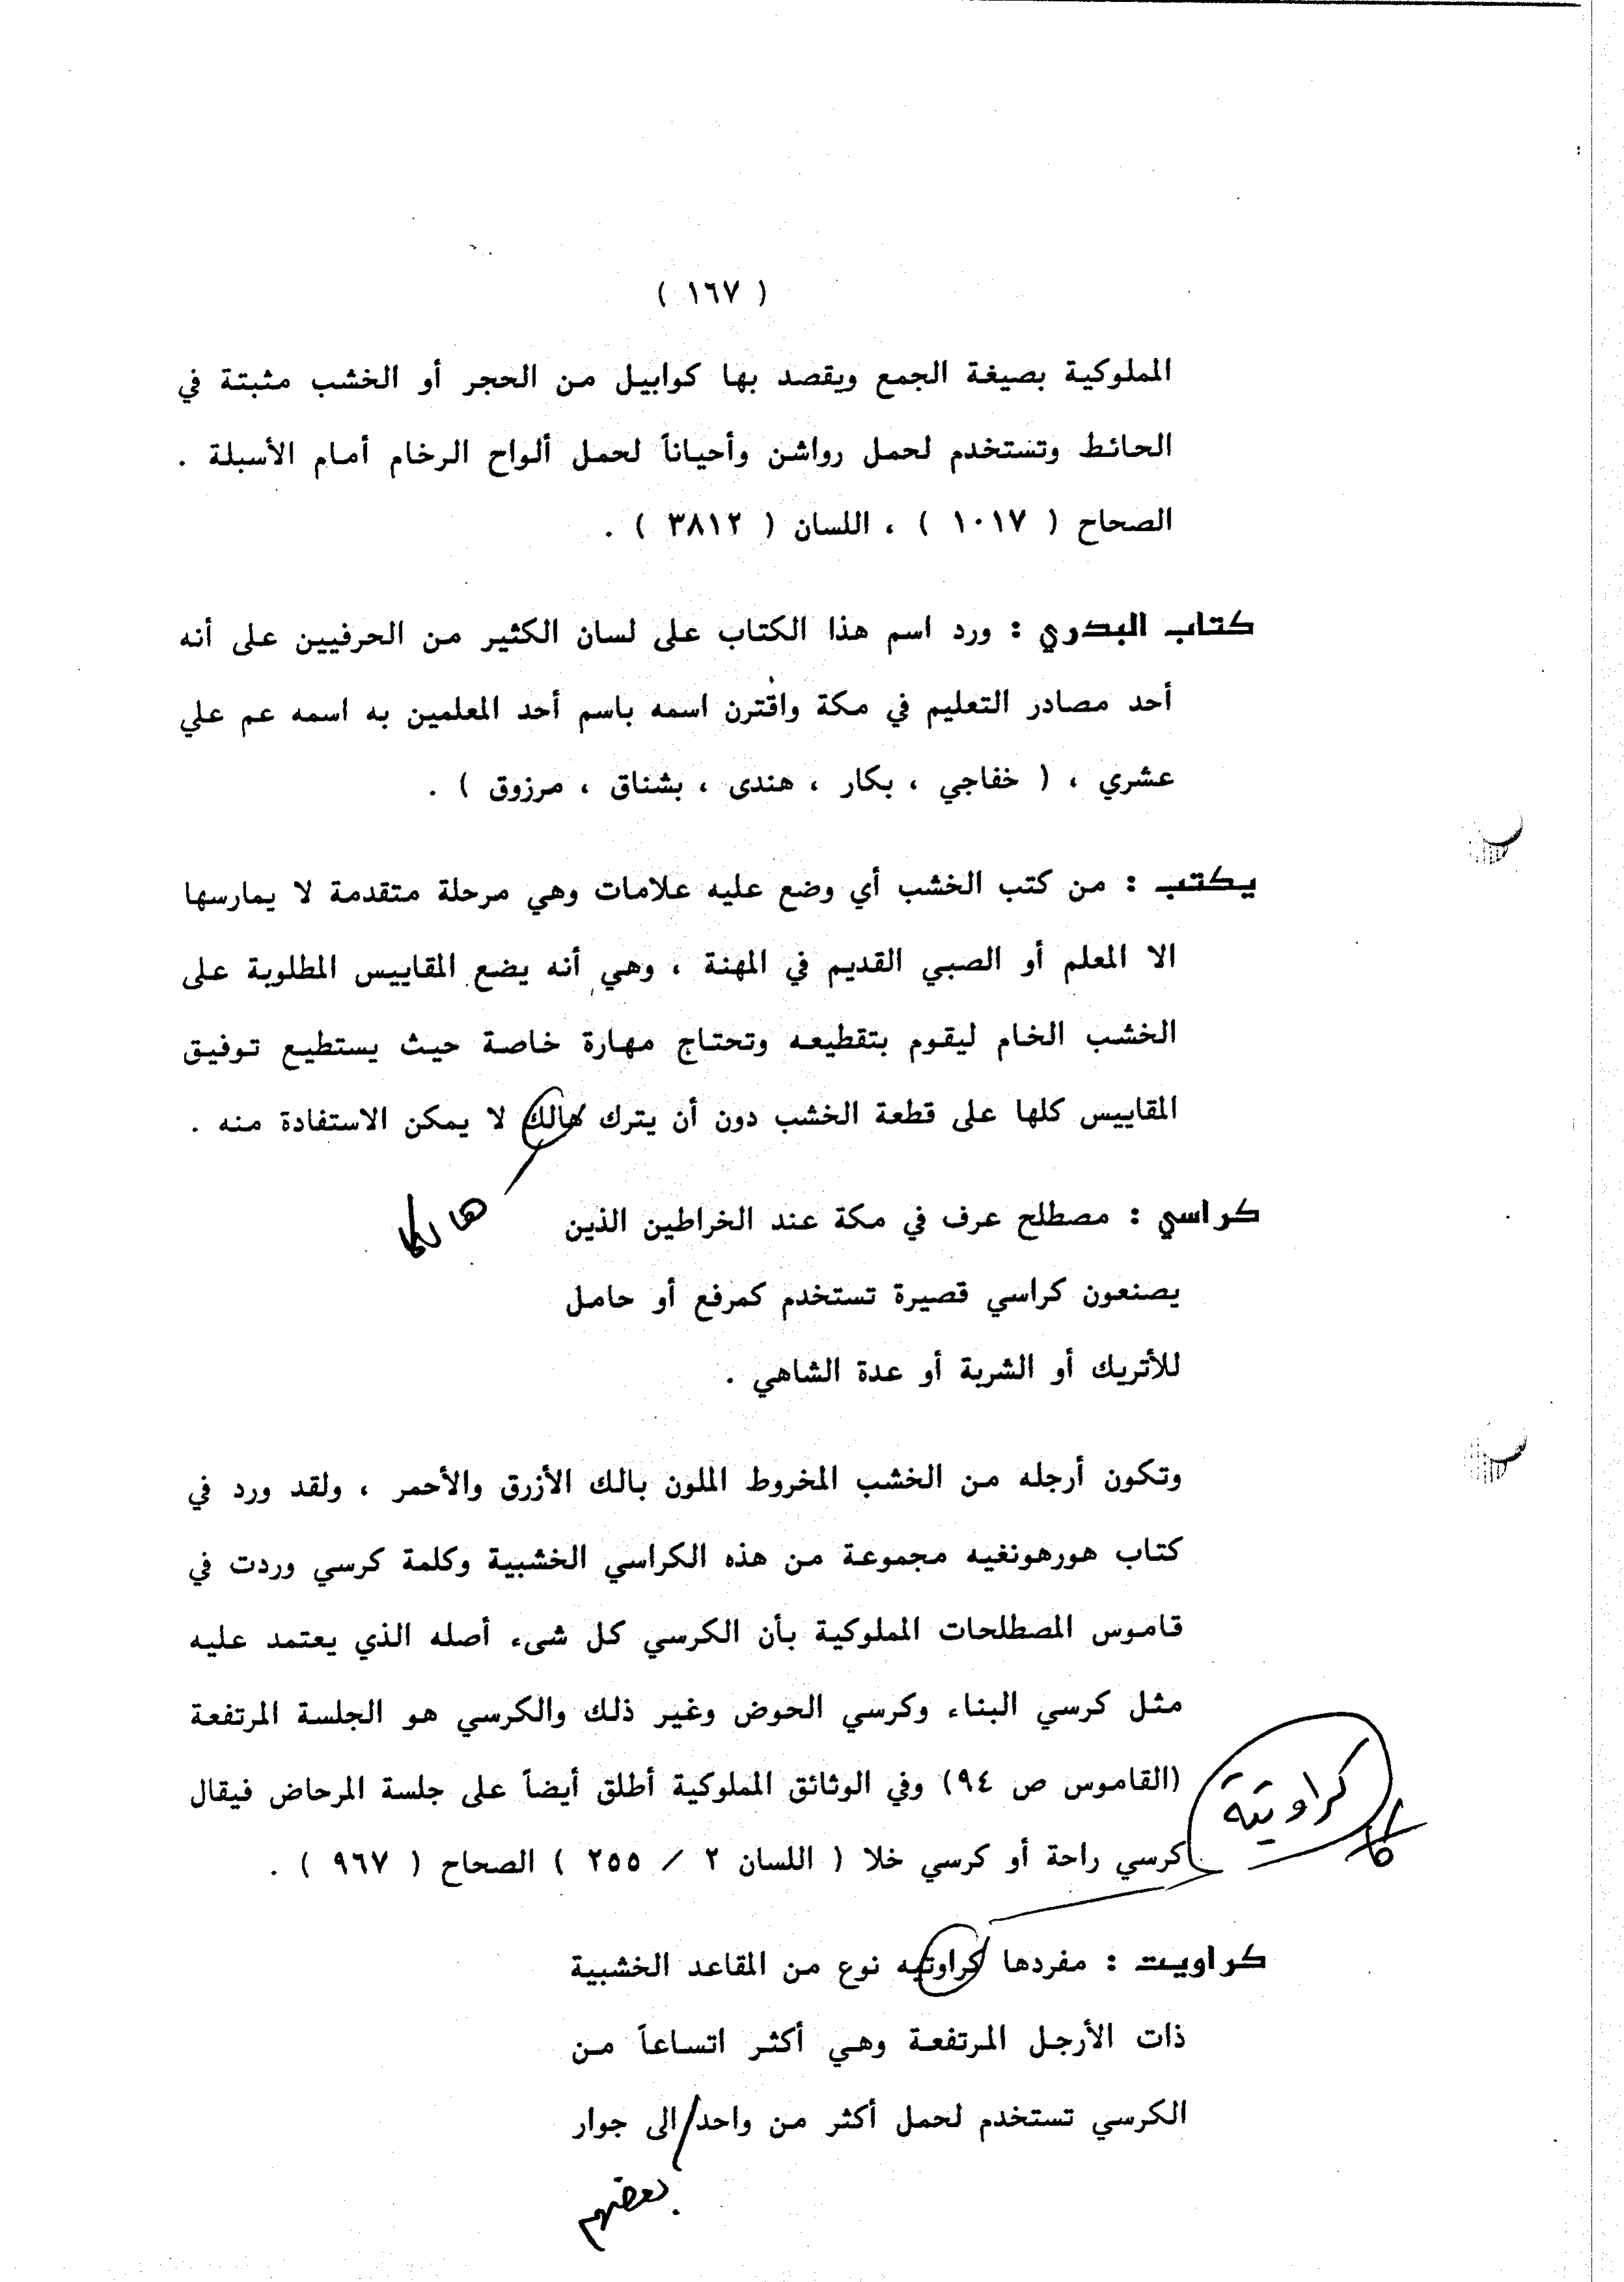 ( ١٦٧ )
المملوكية بصيغة الجمع ويقصد بها كوابيل من الحجر أو الخشب مثبتة في
الحائط وتستخدم لحمل رواشن وأحياناً لحمل ألواح الرخام أمام الأسبلة .
الصحاح ( ١٠١٧ ) ، اللسان ( ٣٨١٢ ) .
كتاب البدري : ورد اسم هذا الكتاب على لسان الكثير من الحرفيين على أنه
أحد مصادر التعليم في مكة واقترن اسمه باسم أحد المعلمين به اسمه عم علي
عشري ، ( خفاجي ، بكار ، هندى ، بشناق ، مرزوق ) .
يكتب : من كتب الخشب أي وضع عليه علامات وهي مرحلة متقدمة لا يمارسها
الا المعلم أو الصبي القديم في المهنة ، وهي أنه يضع المقاييس المطلوبة على
الخشب الخام ليقوم بتقطيعه وتحتاج مهارة خاصة حيث يستطيع توفيق
المقاييس كلها على قطعة الخشب دون أن يترك هالك لا يمكن الاستفادة منه .
هالكا
كراسي : مصطلح عرف في مكة عند الخراطين الذين
يصنعون كراسي قصيرة تستخدم كمرفع أو حامل
للأتريك أو الشربة أو عدة الشاهي .
وتكون أرجله من الخشب المخروط الملون بالك الأزرق والأحمر ، ولقد ورد في
كتاب هورهونغيه مجموعة من هذه الكراسي الخشبية وكلمة كرسي وردت في
قاموس المصطلحات المملوكية بأن الكرسي كل شىء أصله الذي يعتمد عليه
مثل كرسي البناء وكرسي الحوض وغير ذلك والكرسي هو الجلسة المرتفعة
(القاموس ص ٩٤) وفي الوثائق المملوكية أطلق أيضاً على جلسة المرحاض فيقال
كرسي راحة أو كرسي خلا ( اللسان ٢ / ٢٥٥ ) الصحاح ( ٩٦٧ ) .
كراويتة
كراويت : مفردها كراوتيه نوع من المقاعد الخشبية
ذات الأرجل المرتفعة وهي أكثر اتساعاً من
الكرسي تستخدم لحمل أكثر من واحد/الى جوار
بعضهم